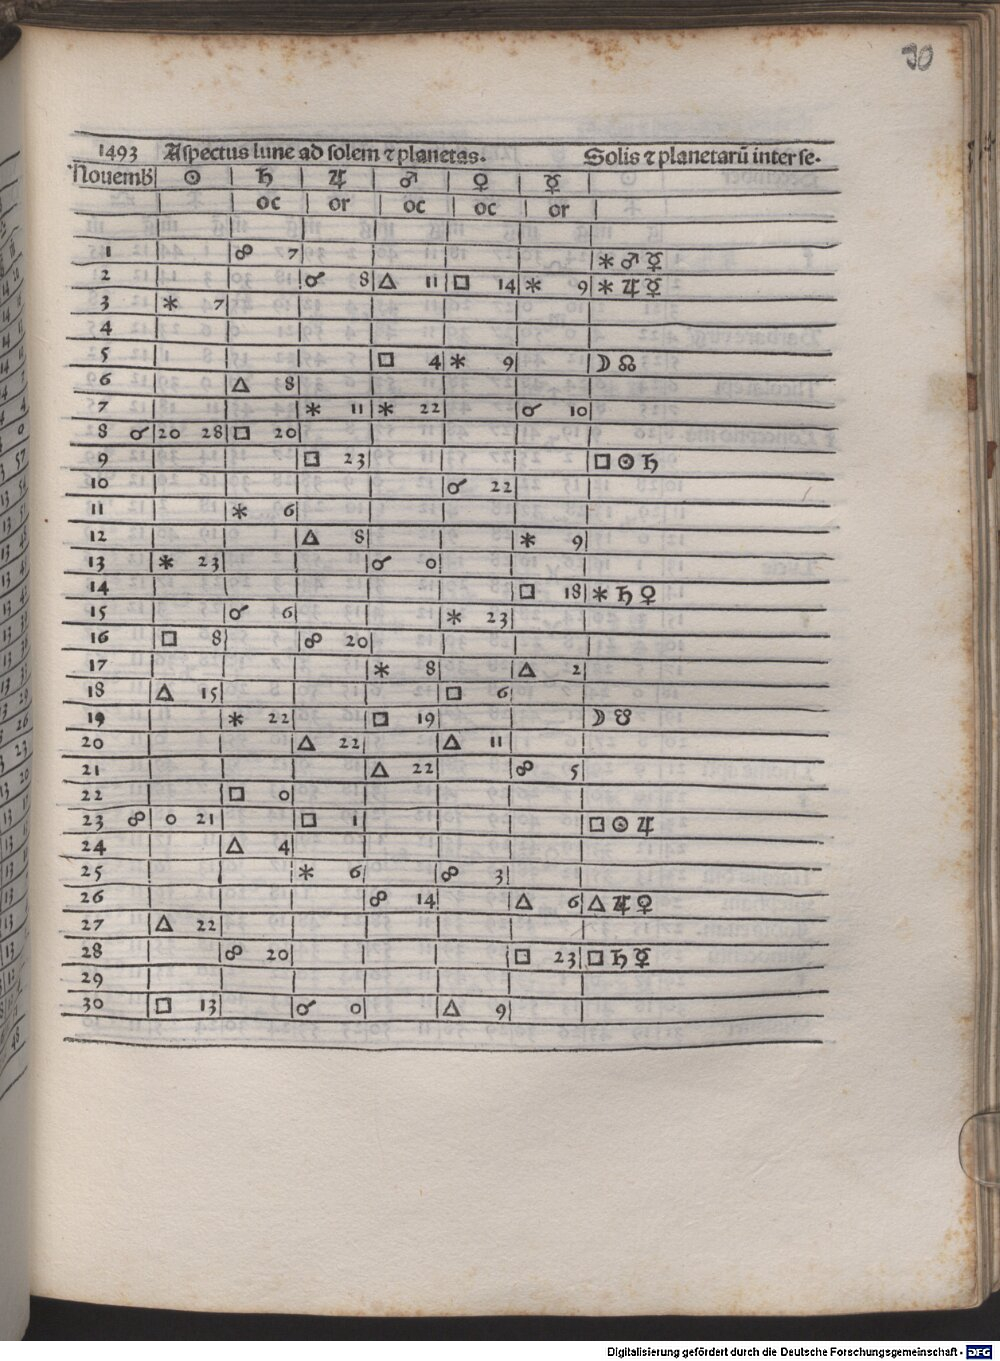 30
1493 Aspectus lune ad solem ⁊ planetas. Solis ⁊ planetarū inter se.
Nouemb ☉ ♄ ♃ ♂ ♀ ☿
oc or oc oc or
1 ☍ 7 ⚹ ♂ ☿
2 ☌ 8 △ 11 □ 14 ⚹ 9 ⚹ ♃ ☿
3 ⚹ 7
4
5 □ 4 ⚹ 9 ☽ ☊
6 △ 8
7 ⚹ 11 ⚹ 22 ☌ 10
8 ☌ 20 28 □ 20
9 □ 23 □ ☉ ♄
10 ☌ 22
11 ⚹ 6
12 △ 8 ⚹ 9
13 ⚹ 23 ☌ 0
14 □ 18 ⚹ ♄ ♀
15 ☌ 6 ⚹ 23
16 □ 8 ☍ 20
17 ⚹ 8 △ 2
18 △ 15 □ 6
19 ⚹ 22 □ 19 ☽ ☋
20 △ 22 △ 11
21 △ 22 ☍ 5
22 □ 0
23 ☍ 0 21 □ 1 □ ☉ ♃
24 △ 4
25 ⚹ 6 ☍ 3
26 ☍ 14 △ 6 △ ♃ ♀
27 △ 22
28 ☍ 20 □ 23 □ ♄ ☿
29
30 □ 13 ☌ 0 △ 9
Digitalisierung gefördert durch die Deutsche Forschungsgemeinschaft - DFG